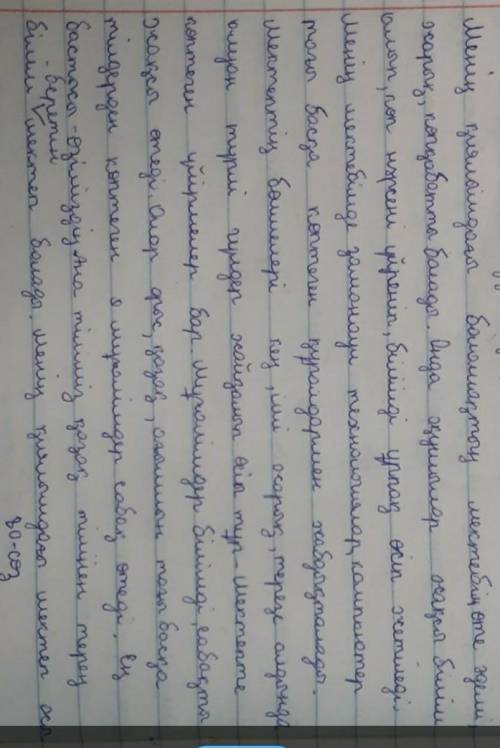 Менің қиялымдағы болашақтың мектебі өте әдемі,
жарық, көпқабатты болады. Онда оқушылар жақсы білім
алып, көп нәрсені үйреніп, білімді ұрпақ өсіп жетіледі.
Менің мектебімде заманауи технологиялар, компьютер
тағы басқа көптеген құралдармен жабдықталады.
Мектептің бөлмелері кең, іші жарық, терезе алдында
алуан түрлі гүлдер жайқалып өсіп тұр. Мектепте
көптеген үйірмелер бар. Мұғалімдер білімді, сабақты
жақсы өтеді. Олар орыс, қазақ, ағылшын тағы басқа
тілдерден көптеген мұғалімдер сабақ өтеді. Ең
бастысы - өзіміздің ана тіліміз қазақ тілінен терең
білім беретін мектеп болады. Менің қиялымдағы мектеп осы
80-сөз